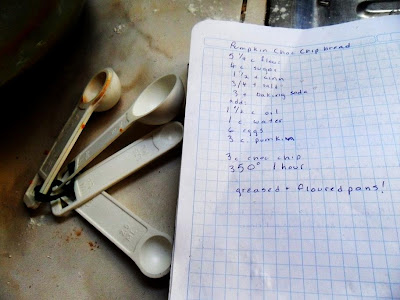 Pumpkin Choc Chip bread
5 1/4 c flour
4 c sugar
1 1/2 t cinn
3/4 t salt
3 t baking soda
add:
1 1/2 c oil
1 c water
6 eggs
3 c pumpkin
3 c choc chip
350° 1 hour
greased + floured pans!